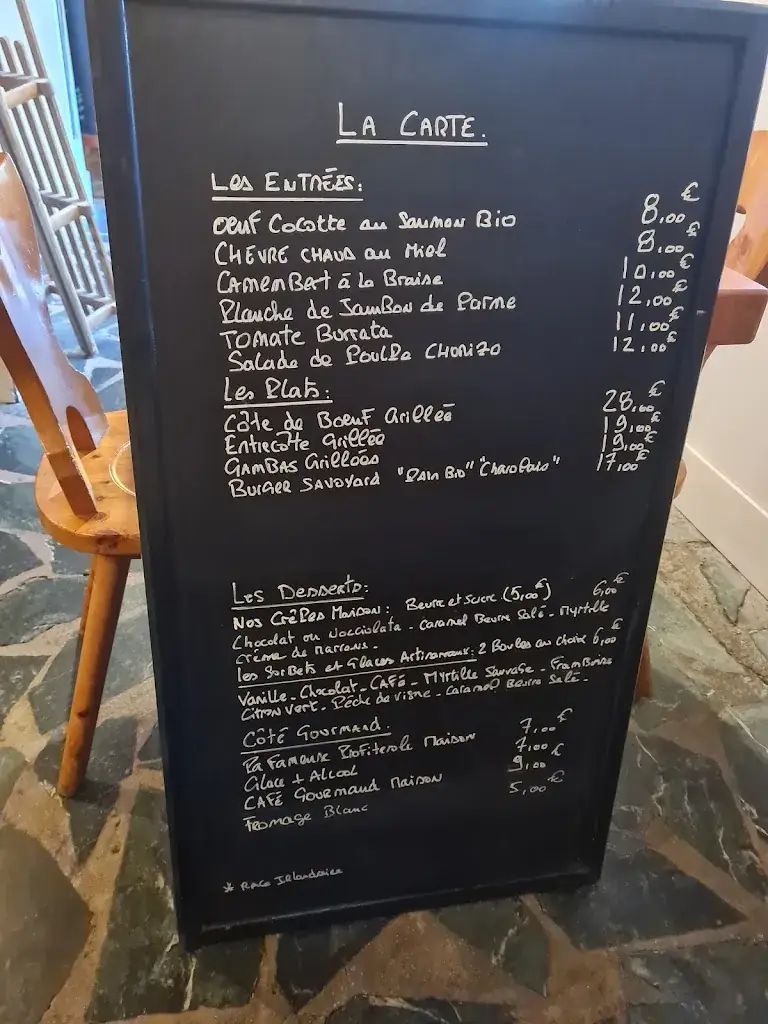 La Carte.
Les Entrées:
Oeuf Cocotte au Saumon Bio 8,00€
Chèvre chaud au Miel 8,00€
Camembert à la Braise 10,00€
Planche de Jambon de Parme 12,00€
Tomate Burrata 11,00€
Salade de Poulpe Chorizo 12,00€
Les Plats:
Côte de Boeuf Grillée 28,00€
Entrecôte Grillée 19,00€
Gambas Grillées 19,00€
Burger Savoyard "Pain Bio" "Charolais" 17,00€
Les Desserts:
Nos Crêpes Maison: Beurre et Sucre (5,00€) 6,00€
Chocolat ou Nocciolata - Caramel Beurre Salé - Myrtille
Crème de Marrons -
Les Sorbets et Glaces Artisanaux: 2 Boules au choix 6,00€
Vanille - Chocolat - Café - Myrtille Sauvage - Framboise
Citron Vert - Pêche de Vigne - Caramel Beurre Salé -
Côté Gourmand.
La Fameuse Profiterole Maison 7,00€
Glace + Alcool 7,00€
Café Gourmand Maison 9,00€
Fromage Blanc 5,00€
* Race Irlandaise